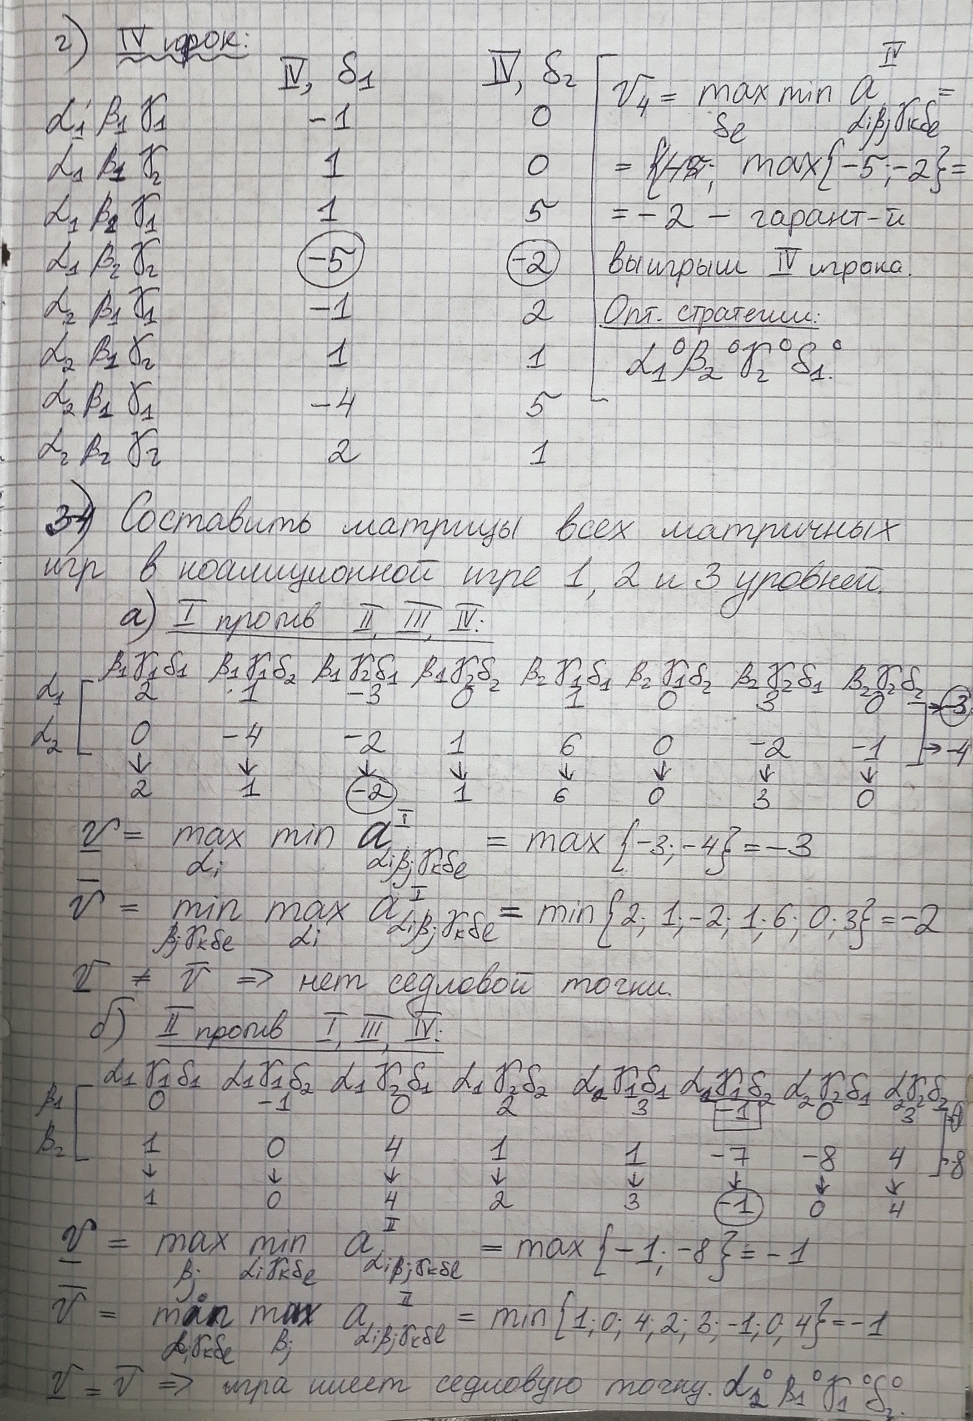 г) IV игрок:
IV, δ₁ IV, δ₂
α₁ β₁ γ₁ -1 0
α₁ β₁ γ₂ 1 0
α₁ β₂ γ₁ 1 5
α₁ β₂ γ₂ -5 -2
α₂ β₁ γ₁ -1 2
α₂ β₁ γ₂ 1 1
α₂ β₁ γ₁ -4 5
α₂ β₂ γ₂ 2 1
V₄ = max min a^IV =
δe αiβjγkδe
= max{-5; -2} =
= -2 - гарант-й
выигрыш IV игрока.
Опт. стратегии:
α₁⁰ β₂⁰ γ₂⁰ δ₁⁰.
3) Составить матрицы всех матричных
игр в коалиционной игре 1, 2 и 3 уровней.
а) I против II, III, IV:
β₁γ₁δ₁ β₁γ₁δ₂ β₁γ₂δ₁ β₁γ₂δ₂ β₂γ₁δ₁ β₂γ₁δ₂ β₂γ₂δ₁ β₂γ₂δ₂
α₁ 2 1 -3 0 1 0 3 0 → -3
α₂ 0 -4 -2 1 6 0 -2 -1 → -4
↓ ↓ ↓ ↓ ↓ ↓ ↓ ↓
2 1 -2 1 6 0 3 0
V = max min a^I = max {-3; -4} = -3
αi αiβjγkδe
V̄ = min max a^I = min{2; 1; -2; 1; 6; 0; 3} = -2
βjγkδe αi αiβjγkδe
V ≠ V̄ => нет седловой точки.
б) II против I, III, IV:
α₁γ₁δ₁ α₁γ₁δ₂ α₁γ₂δ₁ α₁γ₂δ₂ α₂γ₁δ₁ α₂γ₁δ₂ α₂γ₂δ₁ α₂γ₂δ₂
β₁ 0 -1 0 2 3 -1 0 3
β₂ 1 0 4 1 1 -7 -8 4 -8
↓ ↓ ↓ ↓ ↓ ↓ ↓ ↓
1 0 4 2 3 -1 0 4
V = max min a^II = max {-1; -8} = -1
βj αiγkδe αiβjγkδe
V̄ = min max a^II = min{1; 0; 4; 2; 3; -1; 0; 4} = -1
αiγkδe βj αiβjγkδe
V = V̄ => игра имеет седловую точку. α₂⁰ β₁⁰ γ₁⁰ δ₂⁰.